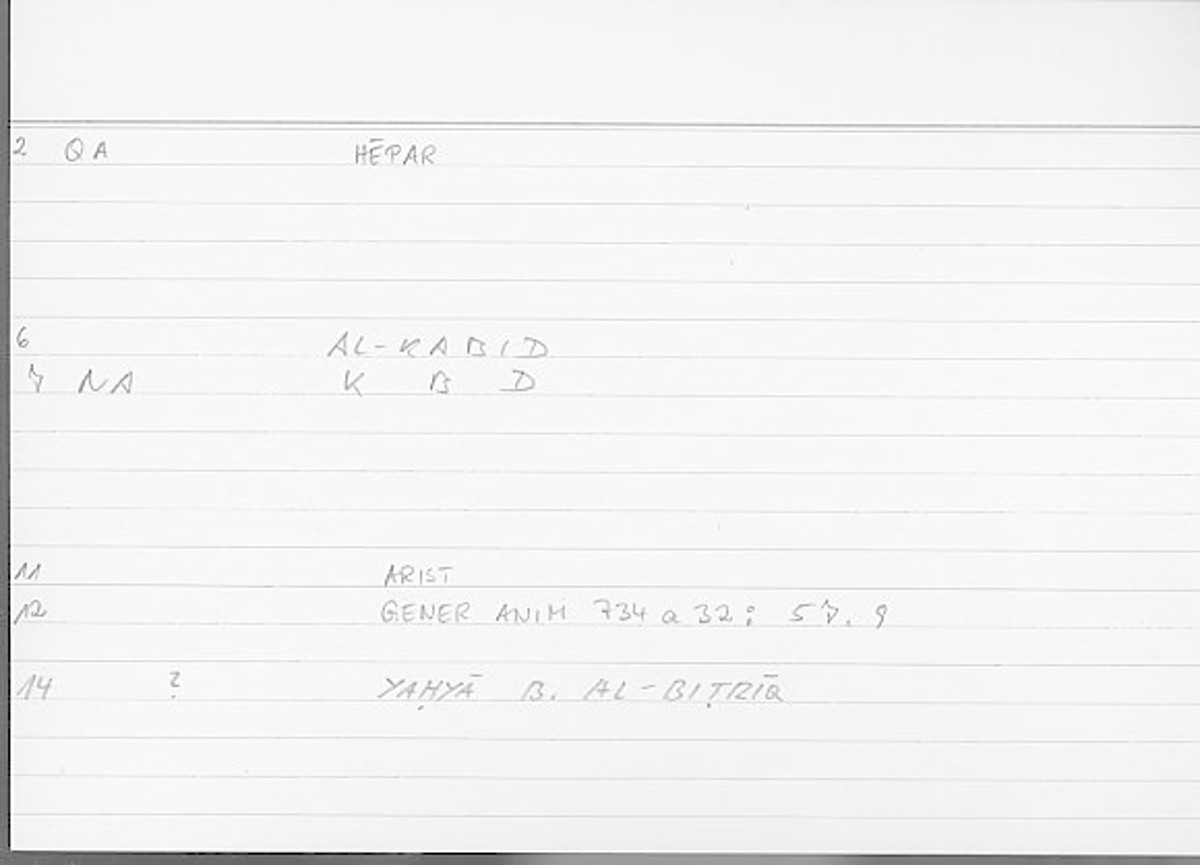 2 QA HĒPAR
6 AL-KABID
7 NA K B D
11 ARIST
12 GENER ANIM 734 a 32 : 57.9
14 ? YAḤYĀ B. AL-BIṬRĪQ